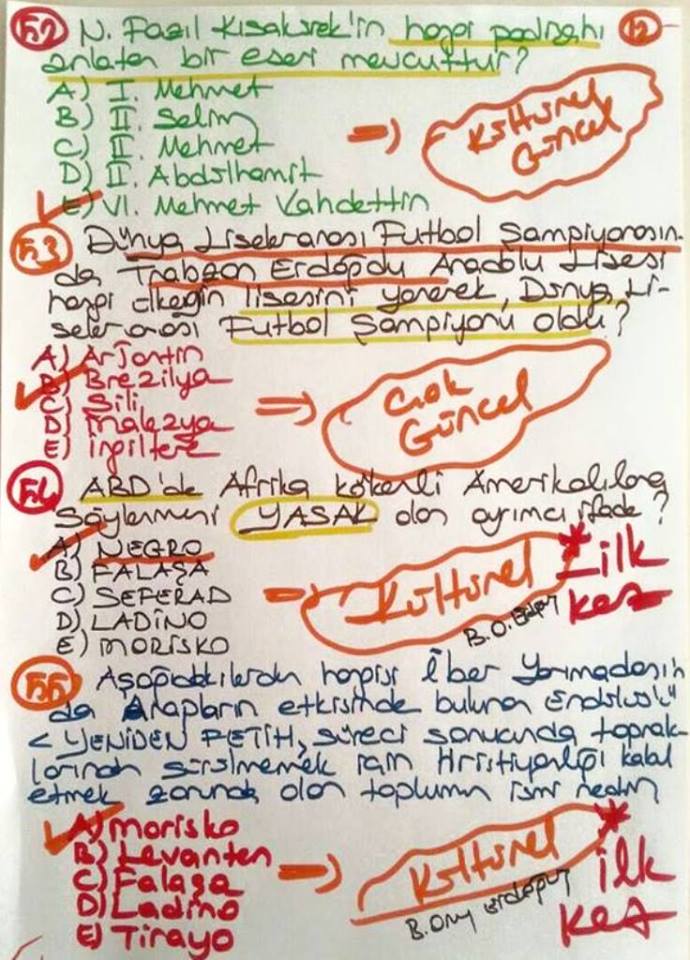 52 N. Fazıl Kısakürek'in hangi padişahı 12
anlatan bir eseri mevcuttur?
A) I. Mehmet
B) II. Selim
C) II. Mehmet
D) II. Abdülhamit
E) VI. Mehmet Vahdettin
=> Kültürel
Güncel
53 Dünya Liselerarası Futbol Şampiyonasın-
da Trabzon Erdoğdu Anadolu Lisesi
hangi ülkenin lisesini yenerek, Dünya Li-
selerarası Futbol Şampiyonu oldu?
A) Arjantin
B) Brezilya
C) Şili
D) Malezya
E) İngiltere
=> Çok
Güncel
54 ABD'de Afrika kökenli Amerikalılara
söylenmesi YASAK olan ayrımcı ifade?
A) NEGRO
B) FALAŞA
C) SEFERAD
D) LADİNO
E) MORİSKO
=> Kültürel * ilk
kez
55 Aşağıdakilerden hangisi İber Yarımadasın
da Arapların etkisinde bulunan Endülüs'ü
< YENİDEN FETİH, süreci sonucunda toprak-
larından sürülmemek için Hristiyanlığı kabul
etmek zorunda olan toplumun ismi nedir
A) Morisko
B) Levanten
C) Falaşa
D) Ladino
E) Tirayo
=> Kültürel * ilk
kez